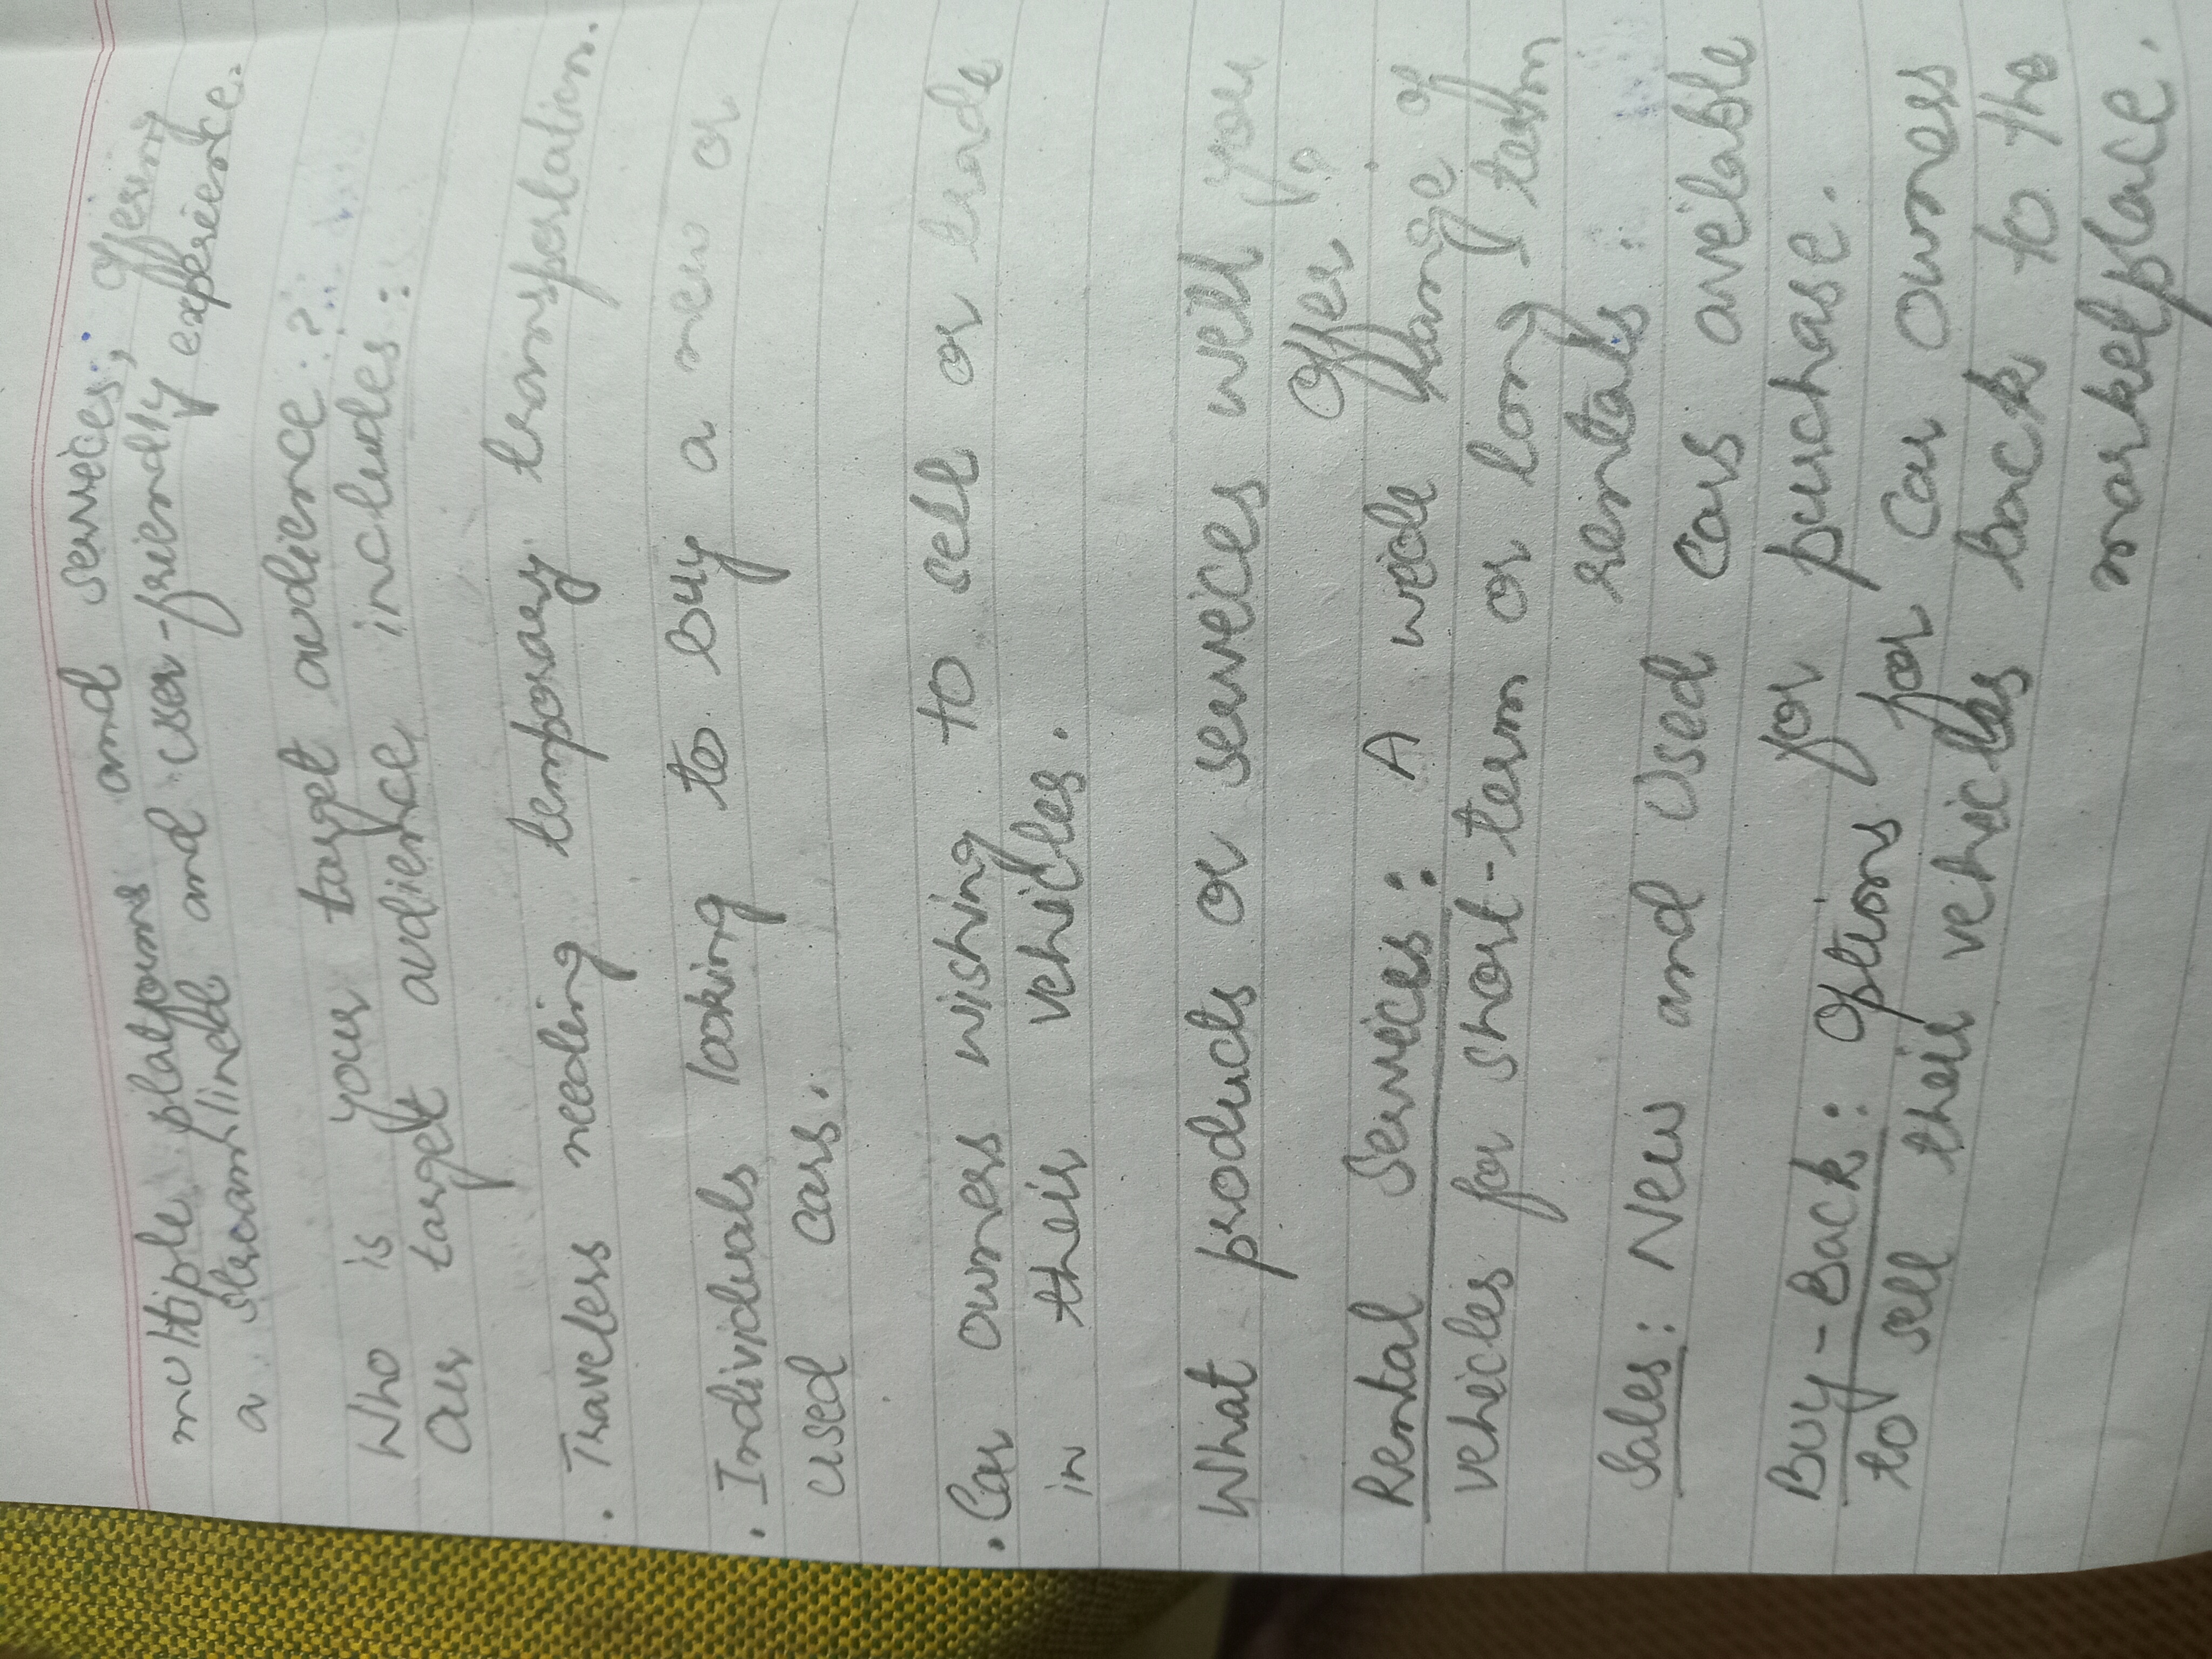 multiple platforms and services, offering
a streamlined and user-friendly experience.
Who is your target audience?
Our target audience includes:
. Travelers needing temporary transportation.
. Individuals looking to buy a new or
used cars.
. Car owners wishing to sell or trade
in their vehicles.
What products or services will you
offer?
Rental Services: A wide range of
vehicles for short-term or long-term
rentals.
Sales: New and Used cars available
for purchase.
Buy-Back: Options for Car owners
to sell their vehicles back to the
marketplace.